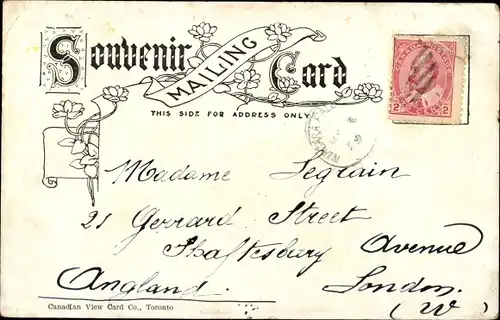 Souvenir Card
MAILING
THIS SIDE FOR ADDRESS ONLY
CANADA POSTAGE
2 CENTS 2
NIAGARA FALLS
Madame Segrain
21 Gerrard Street
Shaftesbury Avenue
Angland. London.
(W)
Canadian View Card Co., Toronto